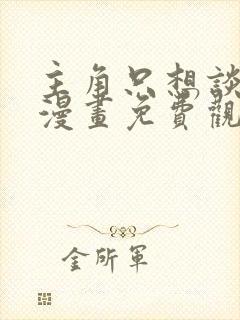 主角只想談
漫畫免費觀
金所軍